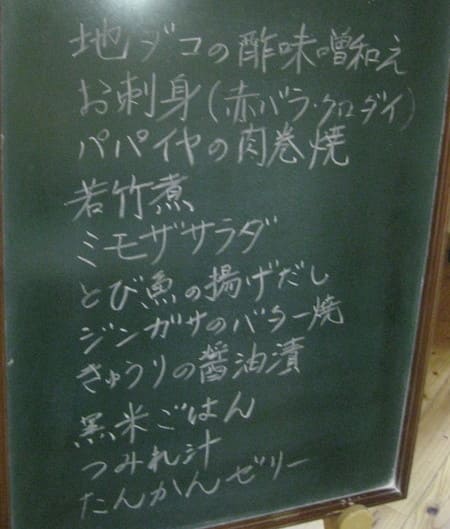 地ダコの酢味噌和え
お刺身(赤バラ・クロダイ)
パパイヤの肉巻焼
若竹煮
ミモザサラダ
とび魚の揚げだし
ジンガサのバター焼
きゅうりの醤油漬
黒米ごはん
つみれ汁
たんかんゼリー